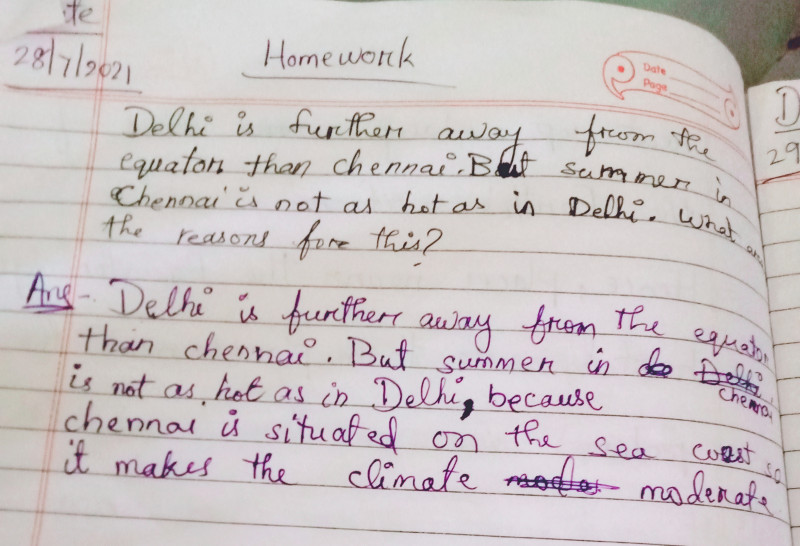 te
28/7/2021
Homework
Date
Page
Delhi is further away from the
equator than chennai. But summer in
Chennai is not as hot as in Delhi. What are
the reasons for this?
Ans- Delhi is further away from the equator
than chennai. But summer in Delhi
chennai
is not as hot as in Delhi, because
chennai is situated on the sea coast so
it makes the climate moderate
D
29